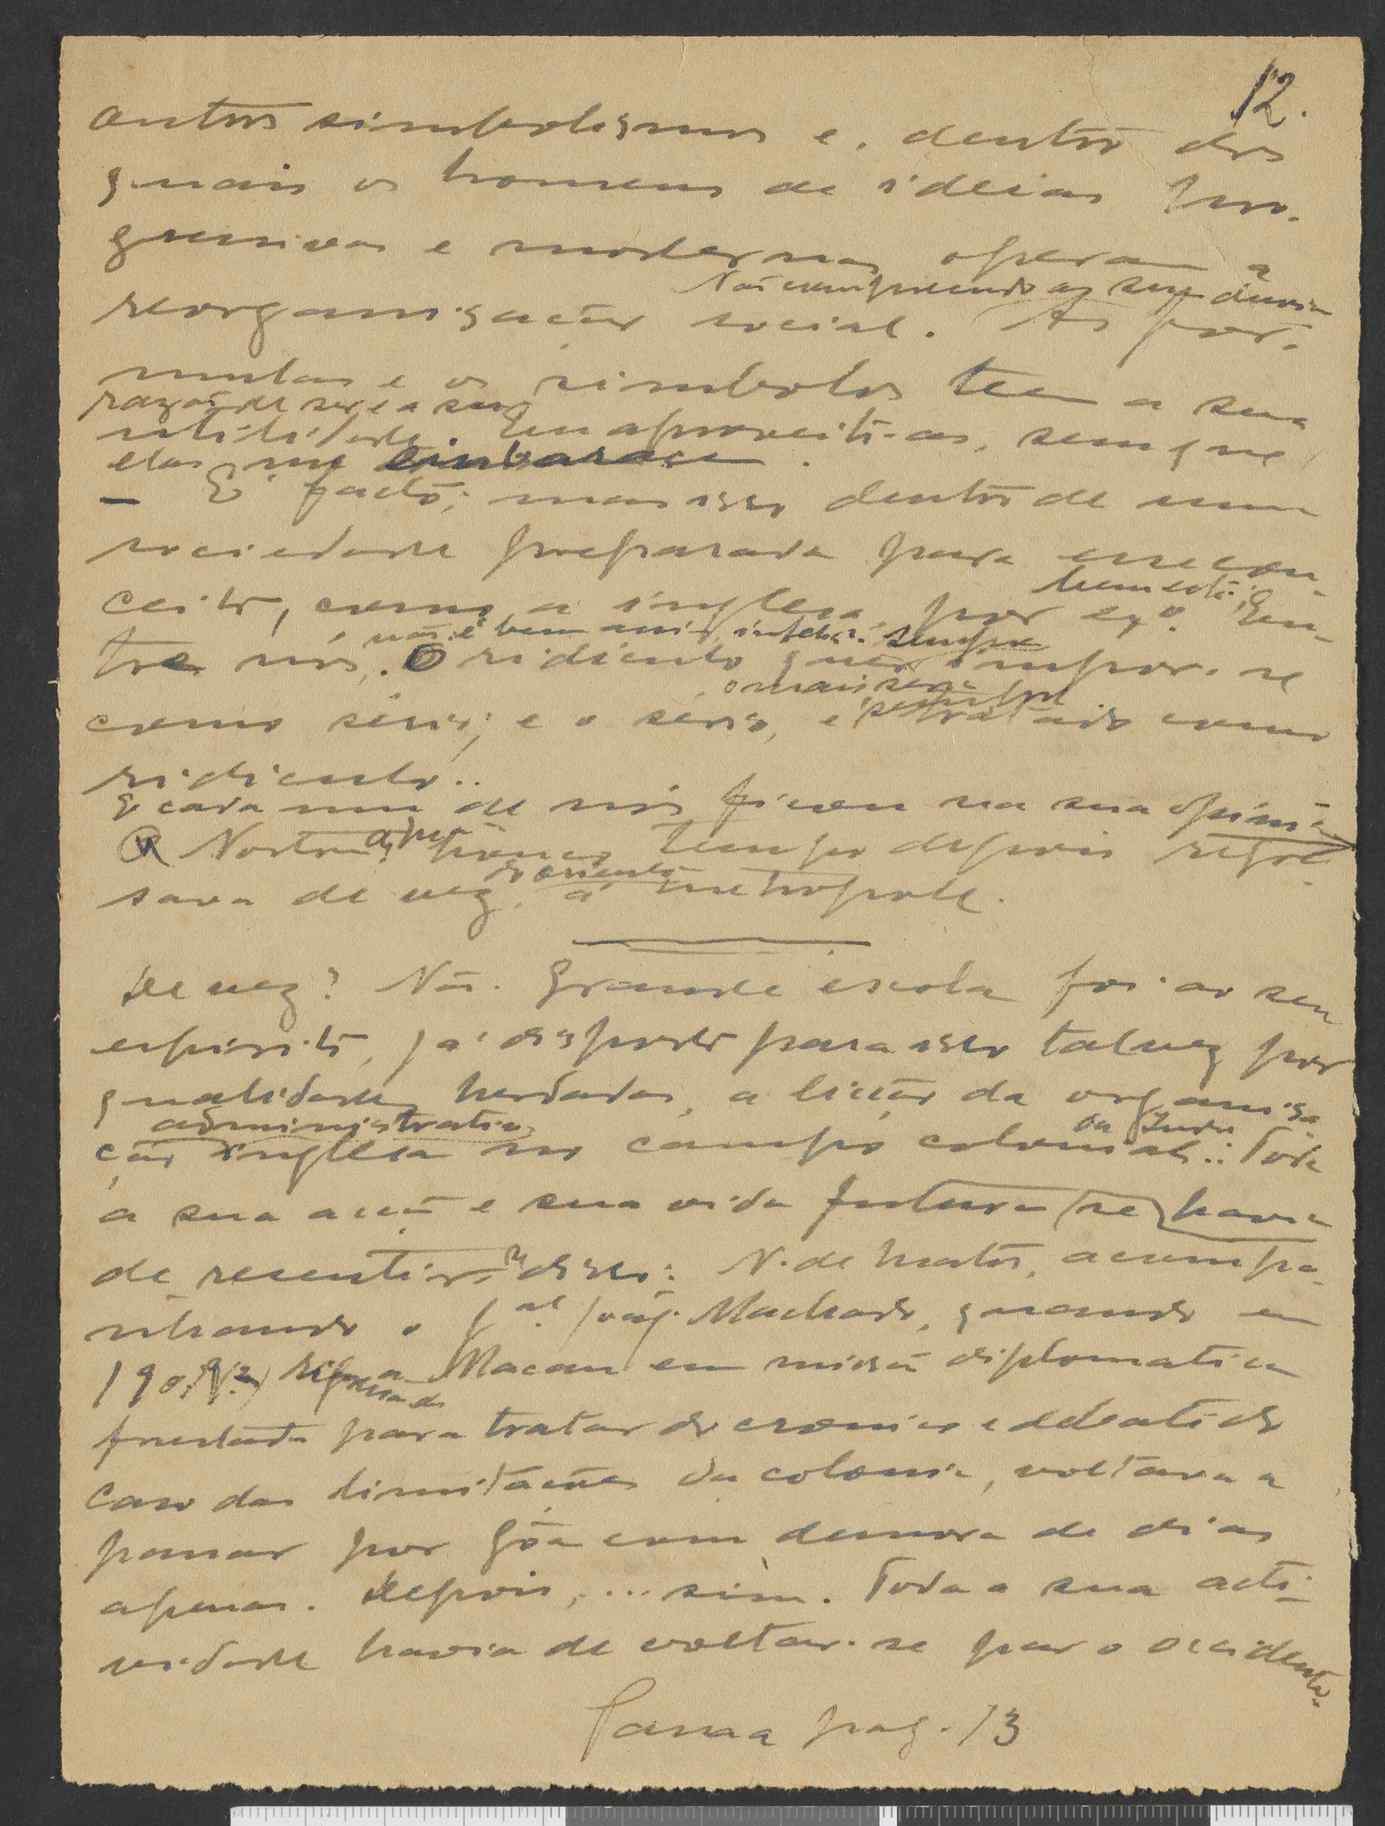 12.
antos simbolismos e, dentro dos
quais os homens de ideias pro-
gressivas e modernas operam a
Não compreendo as sem
reorganisação social. As for-
mulas e os simbolos teem a sua
razão de ser e a sua
utilidade. Eu aproveito-as, sem que
elas me embarace.
— E' facto; mas isso dentro de uma
sociedade preparada para esse con-
ceito, como a inglesa, por ex.º
bem está; En-
tre nós, não é bem assim O ridiculo quer sempre impor-se
como sério; e o sério, é
o mais sempre tratado como
ridiculo..
E cada um de nós ficou na sua opinião
Norton, pouco tempo depois regres-
sava de vez, do oriente á metropole.
De vez? Não. Grande escola foi ao seu
espirito, já disposto para isso talvez por
qualidades herdadas, a lição da organisa-
ção administrativa inglesa no campo colonial da India: Toda
a sua acção e sua vida futura se havia
de resentir disso: N. de Matos, acompa-
nhando o gal Joaq. Machado, quando em
190 a Macau em missão diplomatica
frustada para tratar do cronico e debatido
caso das limitações da colonia, voltava a
passar por Gôa com demora de dias
apenas. Depois,... sim. Toda a sua acti-
vidade havia de voltar-se para o occidente.
Passa pag. 13